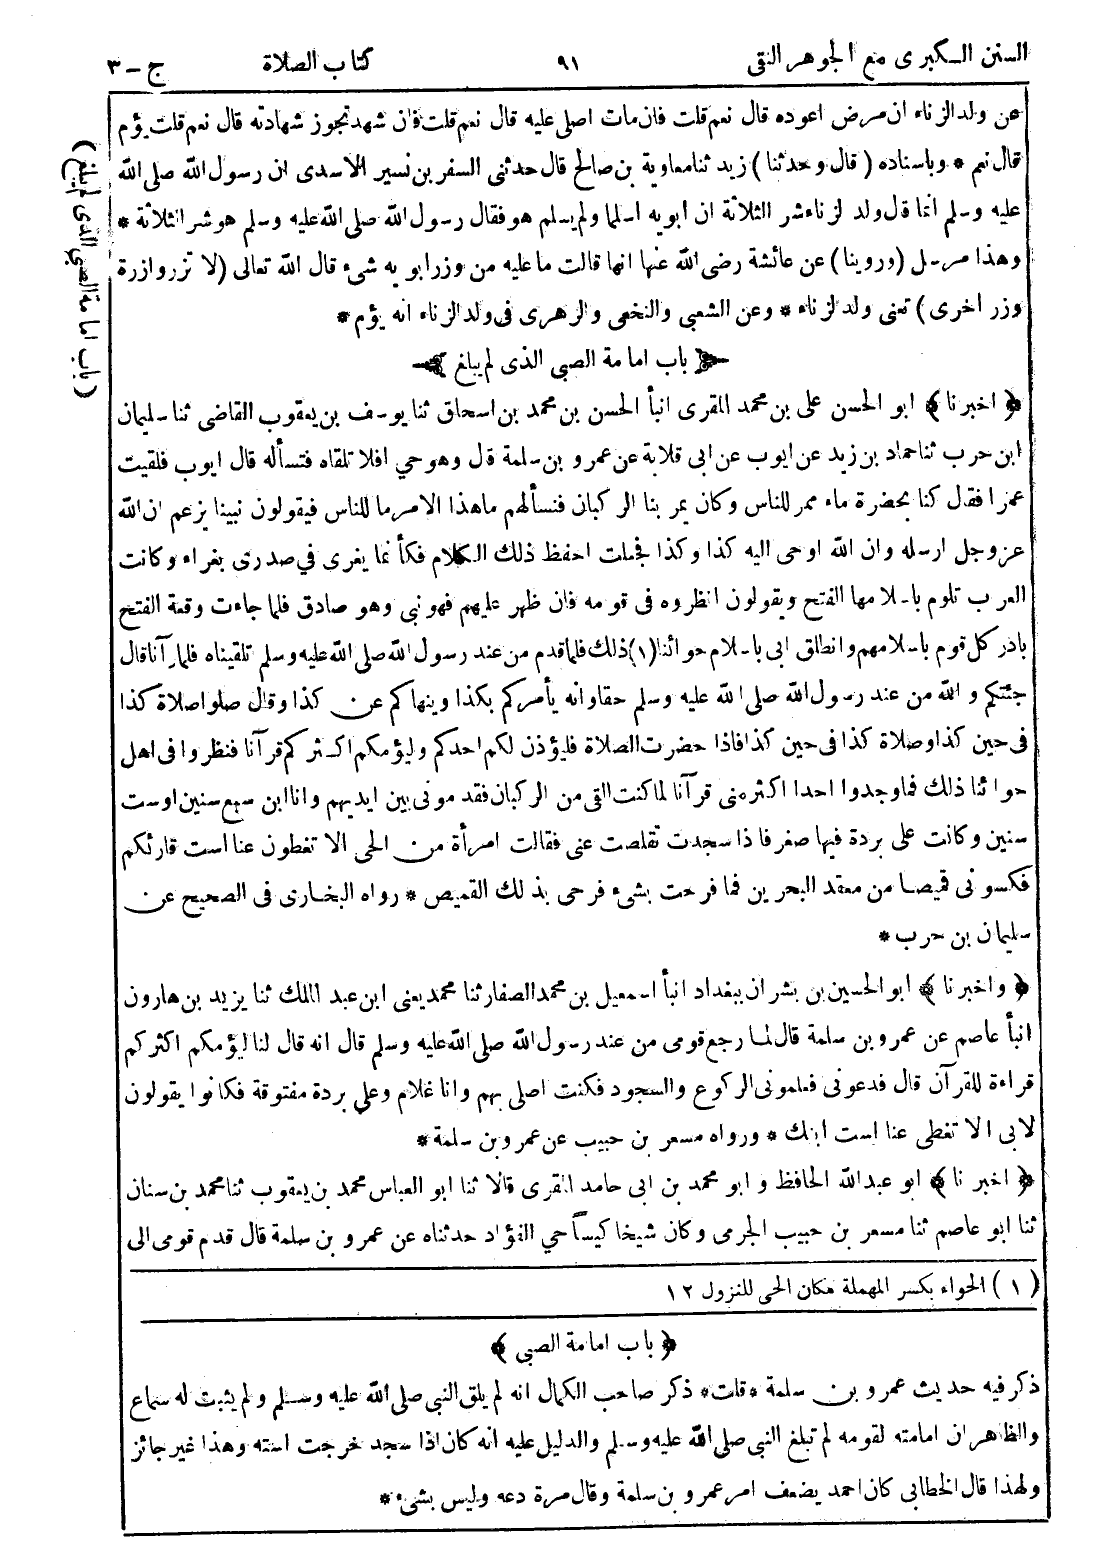 السنن الكبرى مع الجوهر النقى ٩١ كتاب الصلاة ج - ٣
عن ولد الزناء ان مرض اعوده قال نعم قلت فان مات اصلى عليه قال نعم قلت فان شهد تجوز شهادته قال نعم قلت يؤم
قال نعم * وباسناده ( قال وحدثنا ) زيد ثنا معاوية بن صالح قال حدثنى السفر بن نسير الاسدى ان رسول الله صلى الله
عليه وسلم انما قال ولد لزناء شر الثلاثة ان ابويه اسلما ولم يسلم هو فقال رسول الله صلى الله عليه وسلم هو شر الثلاثة *
وهذا مرسل ( وروينا ) عن عائشة رضى الله عنها انها قالت ما عليه من وزر ابو يه شئ قال الله تعالى ( لا تزر وازرة
وزر اخرى ) تعنى ولد الزناء * وعن الشعبى والنخعى والزهرى فى ولد الزناء انه يؤم *
باب اما مة الصبى الذى لم يبلغ
( باب اما مة الصبى الذى لم يبلغ )
﴿ اخبر نا ﴾ ابو الحسن على بن محمد المقرى انبأ الحسن بن محمد بن اسحاق ثنا يوسف بن يعقوب القاضى ثنا سليمان
ابن حرب ثنا حماد بن زيد عن ايوب عن ابى قلابة عن عمرو بن سلمة قال وهو حي افلا تلقاه فتسأله قال ايوب فلقيت
عمرا فقال كنا بحضرة ماء ممر للناس وكان يمر بنا الركبان فنسألهم ما هذا الامر ما للناس فيقولون نبينا يزعم ان الله
عز وجل ارسله وان الله اوحى اليه كذا وكذا فجعلت احفظ ذلك الكلام فكأ نما يغرى في صدرى بغراء وكانت
العرب تلوم باسلامها الفتح ويقولون انظروه فى قومه فان ظهر عليهم فهو نبى وهو صادق فلما جاءت وقعة الفتح
بادر كل قوم باسلامهم وانطلق ابى باسلام حوائنا (١) ذلك فلما قدم من عند رسول الله صلى الله عليه وسلم تلقيناه فلما رآنا قال
جئتكم والله من عند رسول الله صلى الله عليه وسلم حقا وانه يأمركم بكذا وينهاكم عن كذا وقال صلوا صلاة كذا
فى حين كذا وصلاة كذا فى حين كذا فاذا حضرت الصلاة فليؤذن لكم احدكم وليؤمكم اكثركم قرآنا فنظروا فى اهل
حوا ئنا ذلك فما وجدوا احدا اكثر منى قرآنا لما كنت القى من الركبان فقد مونى بين ايديهم وانا ابن سبع سنين او ست
سنين وكانت على بردة فيها صغر فا ذا سجدت تقلصت عنى فقالت امرأة من الحى الا تغطون عنا است قارئكم
فكسو نى قميصا من معقد البحرين فما فرحت بشئ فرحى بذ لك القميص * رواه البخارى فى الصحيح عن
سليمان بن حرب *
﴿ واخبر نا ﴾ ابو الحسين بن بشران ببغداد انبأ اسمعيل بن محمد الصفار ثنا محمد يعنى ابن عبد الملك ثنا يزيد بن هارون
انبأ عاصم عن عمرو بن سلمة قال لما رجع قومى من عند رسول الله صلى الله عليه وسلم قال انه قال لنا ليؤمكم اكثركم
قراءة للقرآن قال فدعونى فعلمونى الركوع والسجود فكنت اصلى بهم وانا غلام وعلي بردة مفتوقة فكانوا يقولون
لابى الا تغطى عنا است ابنك * ورواه مسعر بن حبيب عن عمرو بن سلمة *
﴿ اخبر نا ﴾ ابو عبدالله الحافظ و ابو محمد بن ابى حامد المقرى قالا ثنا ابو العباس محمد بن يعقوب ثنا محمد بن سنان
ثنا ابو عاصم ثنا مسعر بن حبيب الجرمى وكان شيخا كيسا حي الفؤاد حدثناه عن عمرو بن سلمة قال قدم قومى الى
( ١ ) الحواء بكسر المهملة مكان الحى للنزول ١٢
﴿ باب امامة الصبى ﴾
ذكر فيه حديث عمرو بن سلمة * قلت * ذكر صاحب الكمال انه لم يلق النبى صلى الله عليه وسلم ولم يثبت له سماع
والظاهر ان امامته لقومه لم تبلغ النبى صلى الله عليه وسلم والدليل عليه انه كان اذا سجد خرجت استه وهذا غير جائز
ولهذا قال الخطابى كان احمد يضعف امر عمرو بن سلمة وقال مرة دعه وليس بشئ *